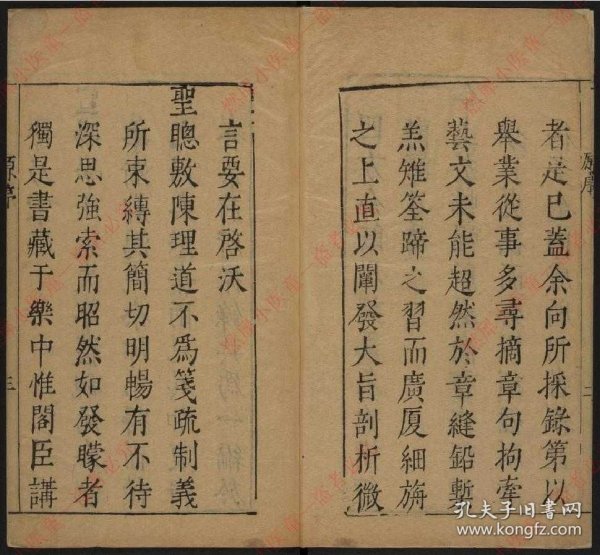 者是已蓋余向所採錄第以
舉業從事多尋摘章句拘牽
藝文未能超然於章縫鉛塹
羔雉筌蹄之習而廣厦細旃
之上直以闡發大旨剖析微
言要在啓沃
聖聰敷陳理道不爲箋疏制義
所束縛其簡切明暢有不待
深思強索而昭然如發矇者
獨是書藏于樂中惟閣臣講
原序
三
原序
二
孔夫子旧书网
www.kongfz.com